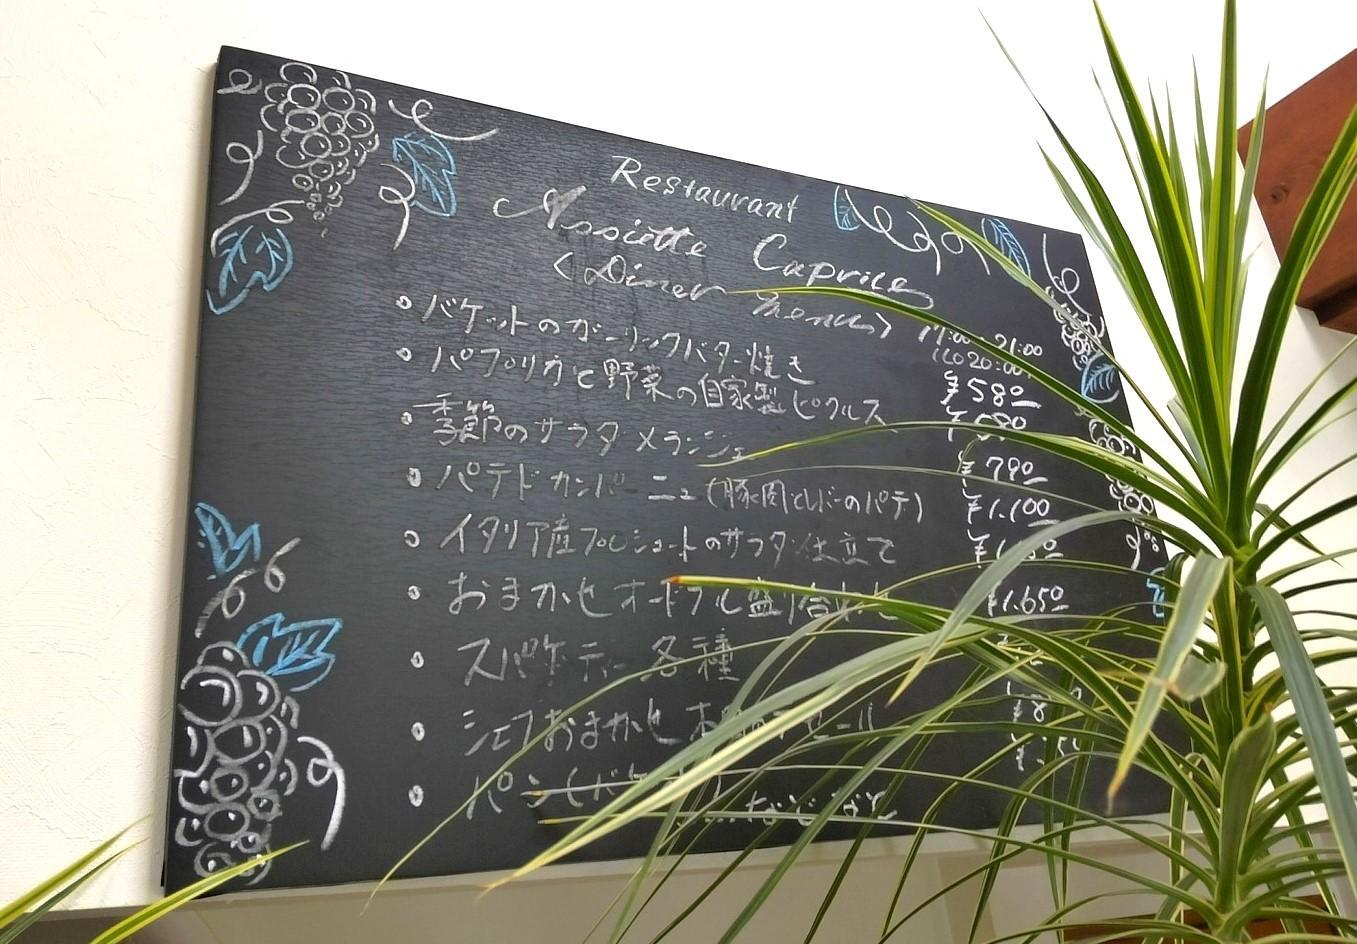 Restaurant
Assiette Caprice
<Diner menu> 17:00 21:00
(LO 20:00)
バケットのガーリックバター焼き ¥580
パプリカと野菜の自家製ピクルス
季節のサラダ メランジェ ¥790
パテドカンパーニュ(豚肉とレバーのパテ) ¥1.100
イタリア産プロシュートのサラダ仕立て
おまかせオードブル盛り合わせ ¥1.650
スパゲッティー各種
シェフおまかせ
パン などなど